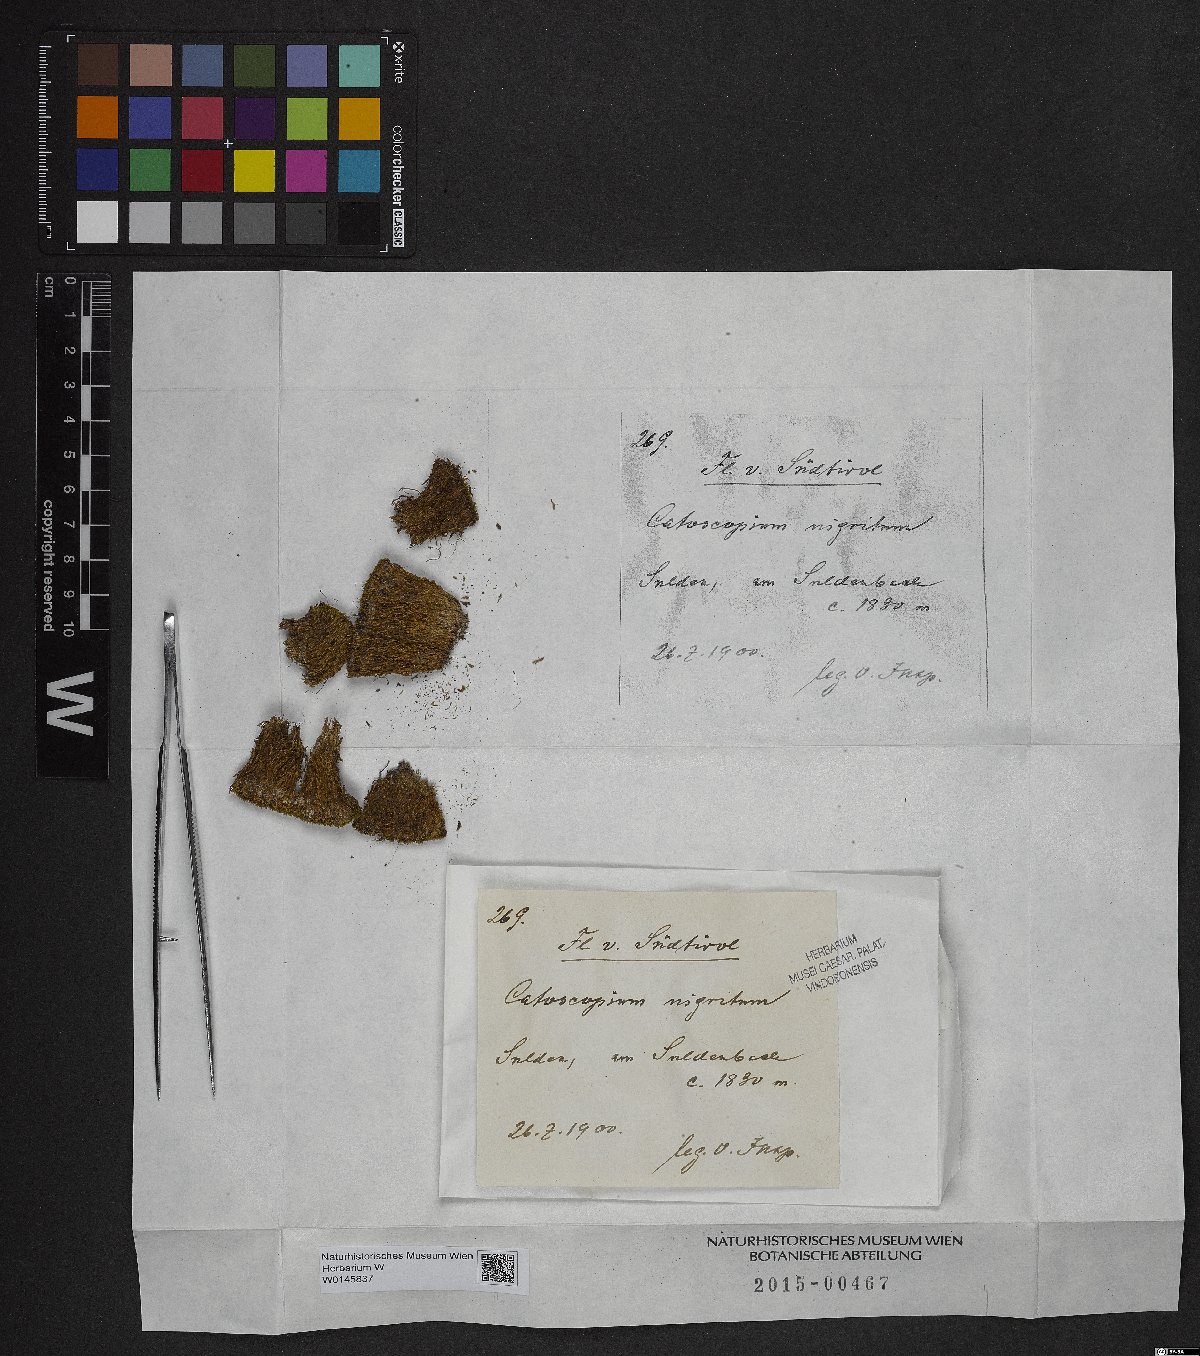 xrite
colorchecker CLASSIC
cm 0 1 2 3 4 5 6 7 8 9 10
copyright reserved
W
269.
Fl. v. Südtirol
Catoscopium nigritum
Sulden, am Suldenbache
c. 1830 m
26.7.1900.
leg. v.
269.
Fl. v. Südtirol
HERBARIUM
MUSEI CAESAR. PALAT.
VINDOBONENSIS
Catoscopium nigritum
Sulden, am Suldenbache
c. 1830 m.
26.7.1900.
leg. v.
Naturhistorisches Museum Wien
Herbarium W
W0145837
NATURHISTORISCHES MUSEUM WIEN
BOTANISCHE ABTEILUNG
2015-00467